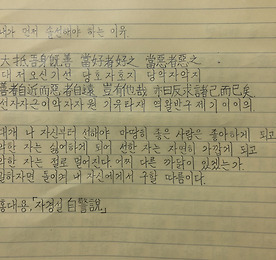 내가 먼저 솔선해야 하는 이유.
大抵吾身旣善 當好者好之 當惡者惡之
대저오신기선 당호자호지 당악자악지
善者自近而惡者自遠 豈有他哉 亦曰反求諸己而已矣
선자자근이악자자원 기유타재 역왈반구제기이이의
대개 나 자신부터 선해야 마땅히 좋은 사람은 좋아하게 되고
악한 자는 싫어하게 되어 선한 자는 자연히 가깝게 되고
악한 자는 절로 멀어진다. 어찌 다른 까닭이 있겠는가.
말하자면 돌이켜 내 자신에게서 구할 따름이다.
홍대용, 「자경설 自警說」